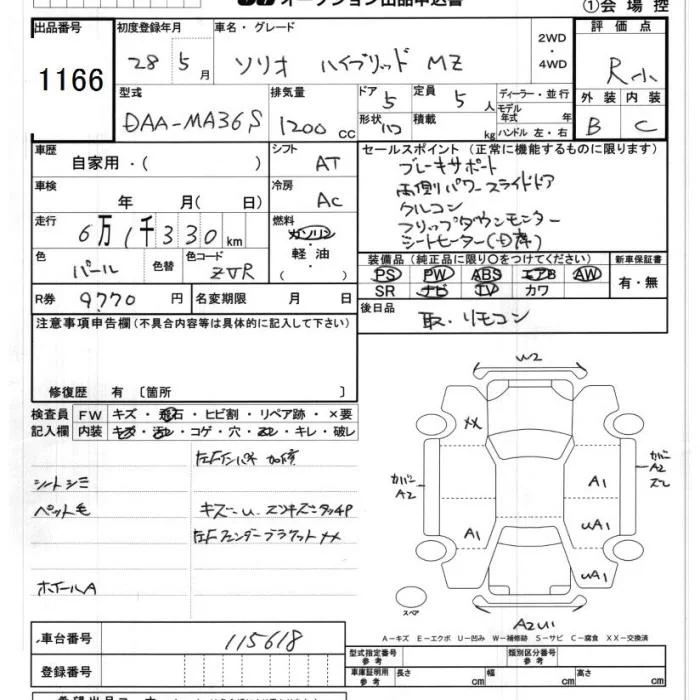 オークション出品申込書
①会場控
出品番号 初度登録年月 車名・グレード 評価点
1166
28 5月 ソリオ ハイブリッド MZ
2WD
・
4WD
R小
型式 排気量 ドア 定員 ディーラー・並行 外装 内装
DAA-MA36S 1200cc 5 5人
モデル年式 年
形状 積載 kg ハンドル 左・右
B C
車歴 自家用・( ) シフト AT
セールスポイント (正常に機能するものに限ります)
ブレーキサポート
両側パワースライドドア
クルコン
フリップダウンモニター
シートヒーター(D席)
車検 年 月(日) 冷房 AC
走行 6万1千330km 燃料 ガソリン・軽油・( )
色 パール 色替 色コード ZVR
装備品 (純正品に限り○をつけてください) 新車保証書
PS PW ABS エアB AW 有・無
SR ナビ TV カワ
R券 9770円 名変期限 月 日
後日品 取、リモコン
注意事項申告欄(不具合内容等は具体的に記入して下さい)
修復歴 有 〔箇所 〕
検査員記入欄
FW キズ・飛石・ヒビ割・リペア跡・×要
内装 キズ・汚レ・コゲ・穴・スレ・キレ・破レ
左Fインパネ 加修
シートシミ
ペット毛 キズ.U.エクボ
ホイールA
W2
XX
カバーA2
カバーA2
A1
A1
UA1
UA1
スペア
A-キズ E-エクボ U-凹み W-補修跡 S-サビ C-腐食 XX-交換済
車台番号 115618
登録番号
型式指定番号 参考 類別区分番号 参考
車庫証明用 参考 長さ cm 幅 cm 高さ cm